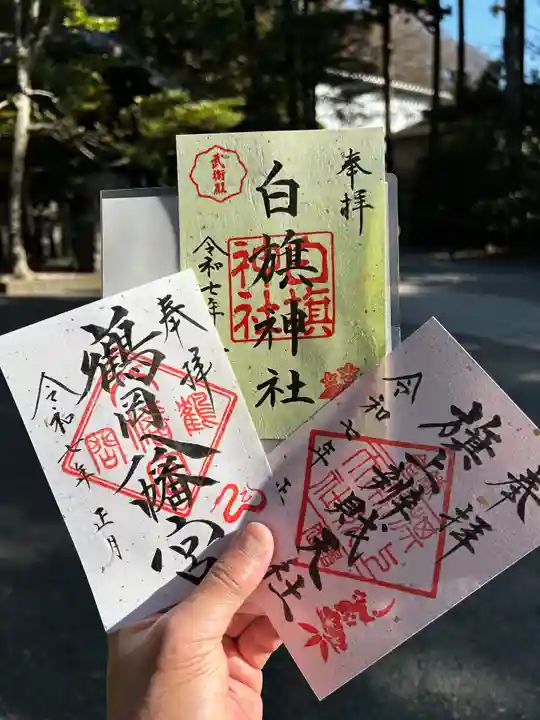 武衛殿
奉拝
白旗神社
白旗神社
令和七年
奉拝
鶴岡八幡宮
令和七年 正月
奉拝
旗上弁財天社
令和七年 正